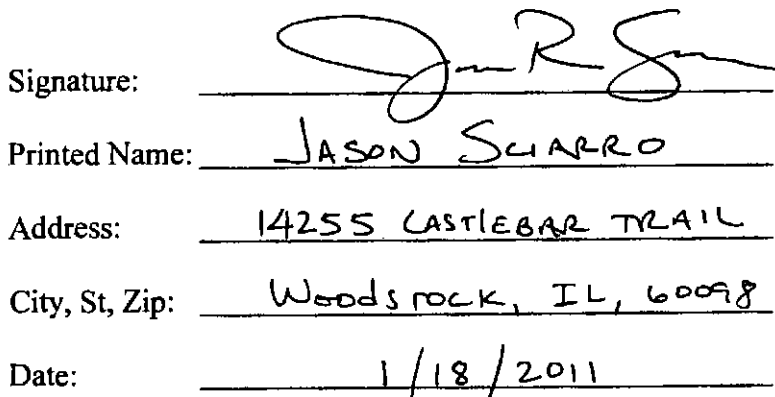 Signature:
Printed Name: JASON SCIARRO
Address: 14255 CASTLEBAR TRAIL
City, St, Zip: Woodstock, IL, 60098
Date: 1/18/2011